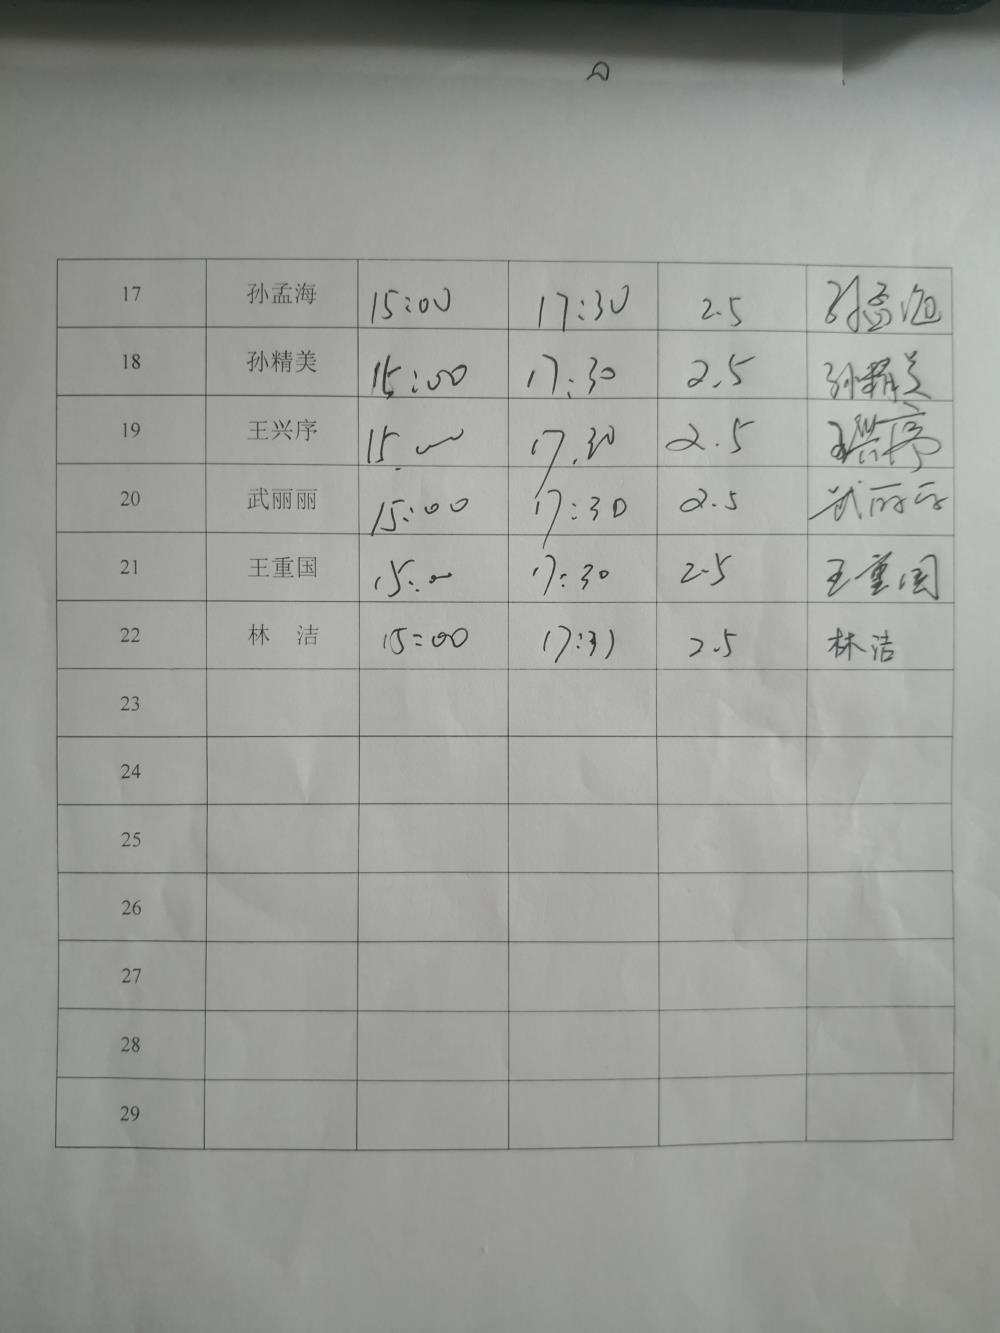 17 孙孟海 15:00 17:30 2.5 孙孟海
18 孙精美 15:00 17:30 2.5 孙精美
19 王兴序 15:00 17.30 2.5 王兴序
20 武丽丽 15:00 17:30 2.5 武丽丽
21 王重国 15:00 17:30 2.5 王重国
22 林 洁 15:00 2.5 林洁
23
24
25
26
27
28
29